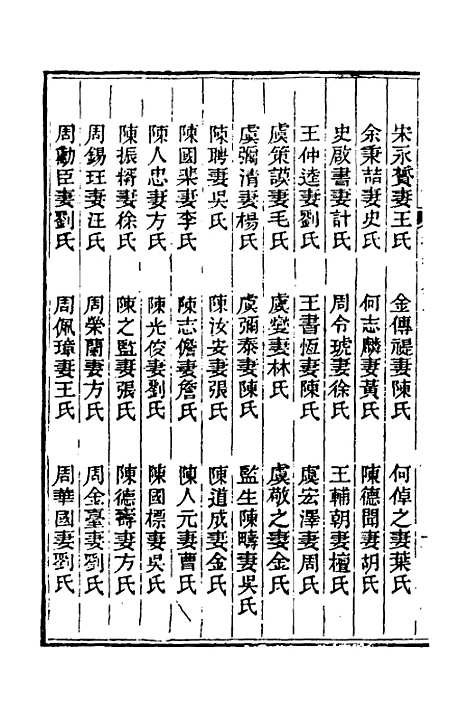 宋永贊妻王氏　金傳禔妻陳氏　何倬之妻葉氏
余秉喆妻史氏　何志麟妻黃氏　陳德聞妻胡氏
史啟書妻計氏　周令琥妻徐氏　王輔朝妻檀氏
王仲逵妻劉氏　王書恆妻陳氏　虞宏澤妻周氏
虞策謨妻毛氏　虞燮妻林氏　虞敬之妻金氏
虞彌清妻楊氏　虞彌泰妻陳氏　監生陳疇妻吳氏
陳聘妻吳氏　陳汝安妻張氏　陳道成妻金氏
陳國棐妻李氏　陳志儋妻詹氏　陳人元妻曹氏
陳人忠妻方氏　陳光俊妻劉氏　陳國標妻吳氏
陳振揟妻徐氏　陳之監妻張氏　陳德壽妻方氏
周錫玨妻汪氏　周榮蘭妻方氏　周金臺妻劉氏
周勳臣妻劉氏　周佩璋妻王氏　周華國妻劉氏